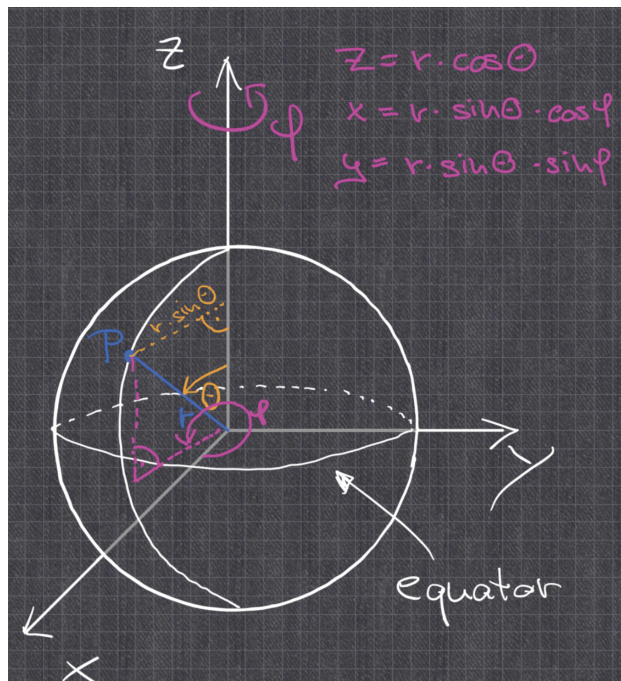 z
z = r · cosΘ
φ
x = r · sinΘ · cosφ
y = r · sinΘ · sinφ
r · sinΘ
P
Θ
r
φ
y
equator
x